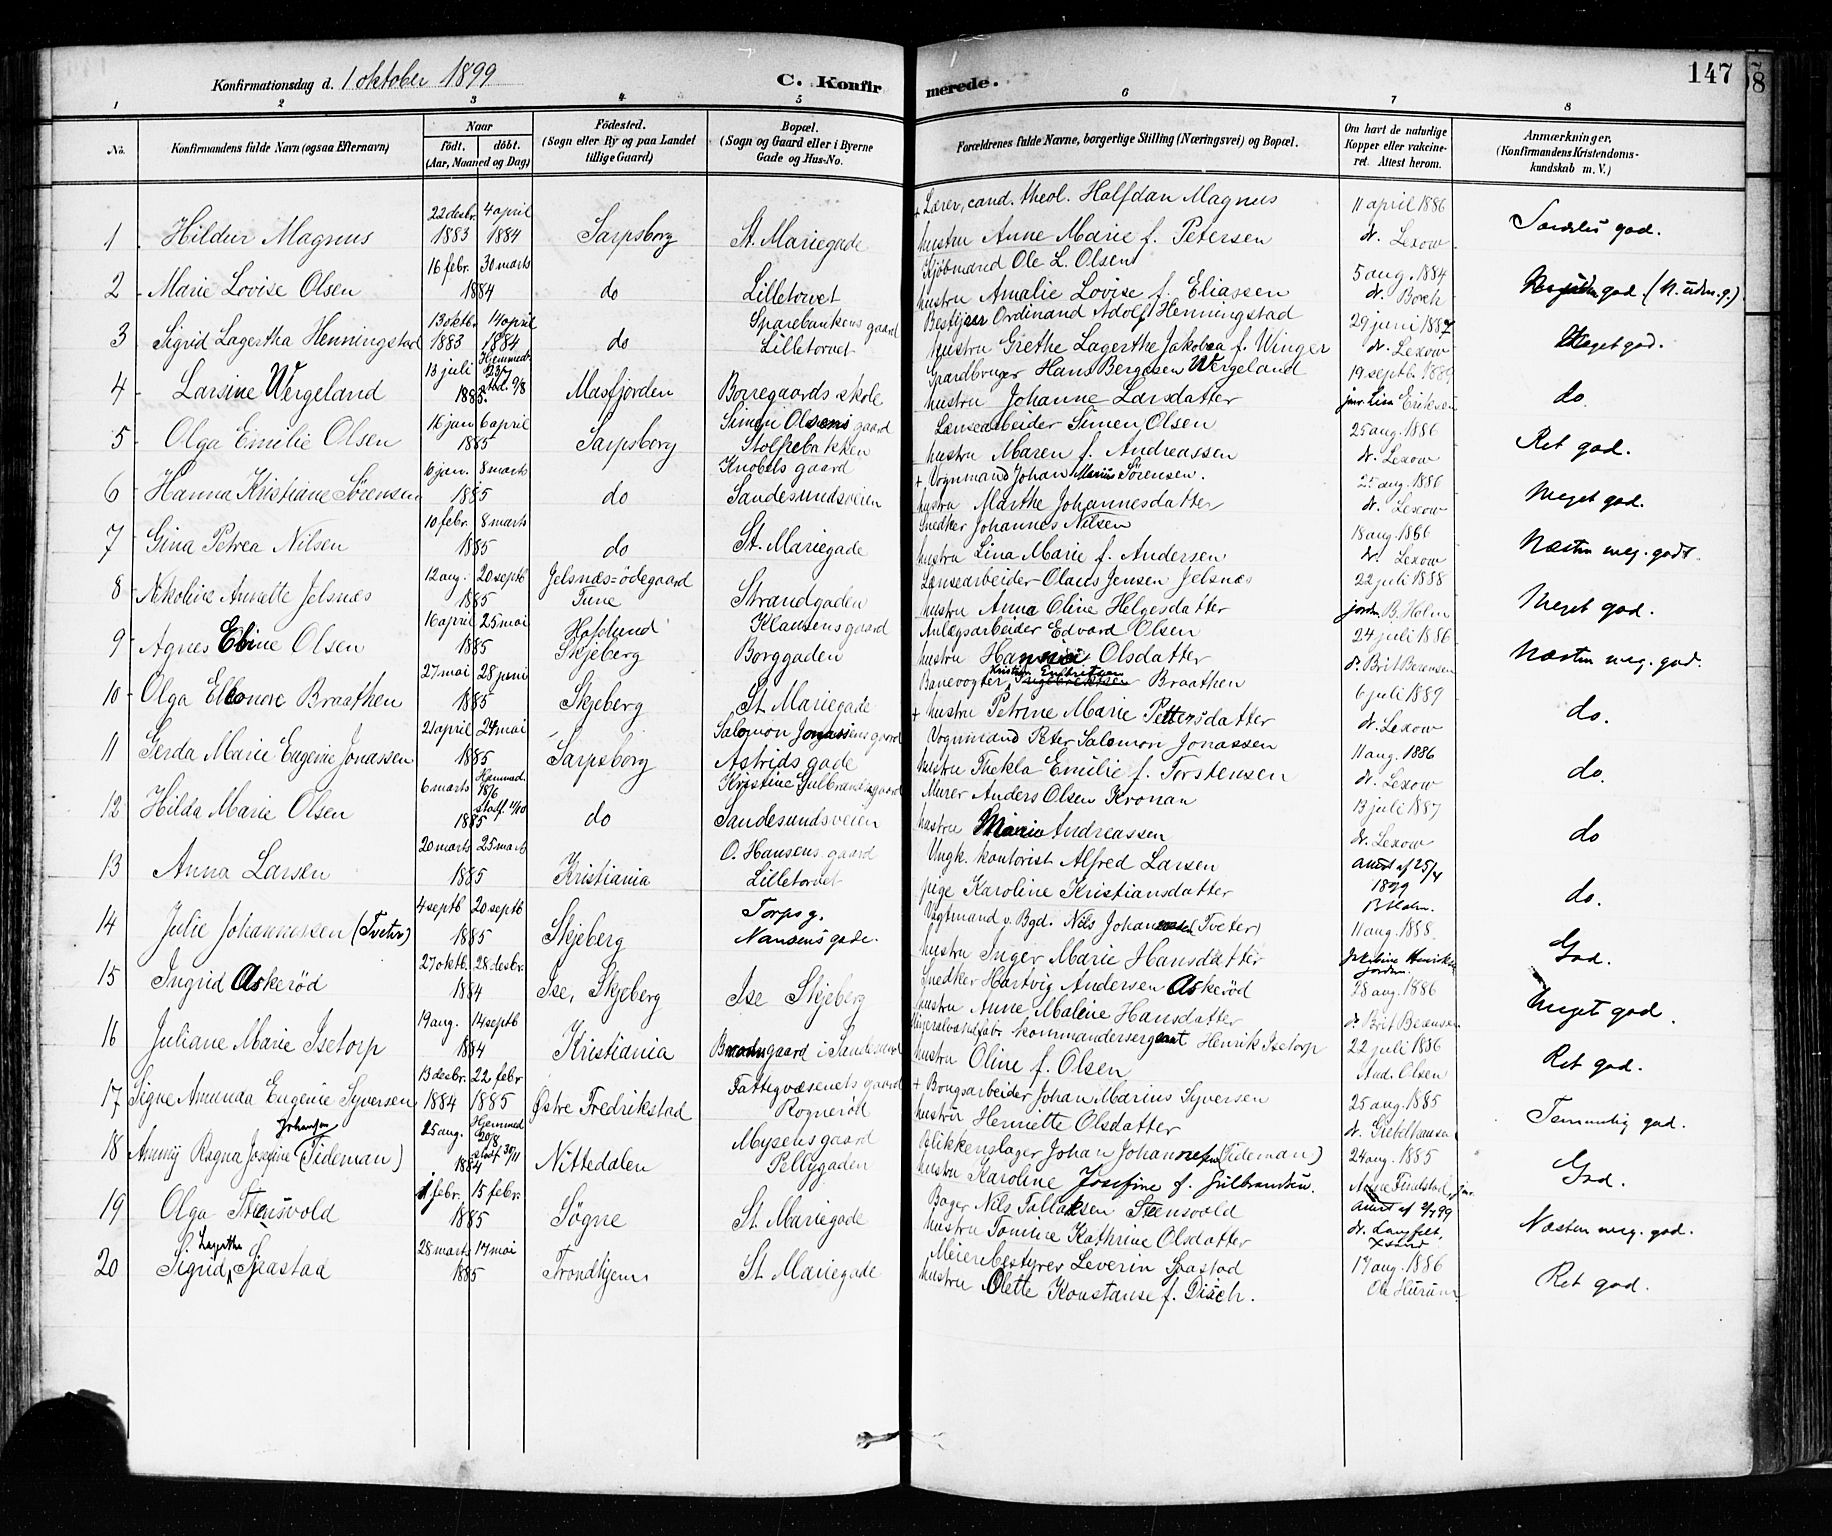 Konfirmationsdag d. 1 oktober 1899 C. Konfirmerede. 147
1 2 3 4 5 6 7 8
No. Konfirmandens fulde Navn (ogsaa Efternavn) Naar födt. döbt. (Aar, Maaned og Dag) Födested. (Sogn eller By og paa Landet tillige Gaard) Bopæl. (Sogn og Gaard eller i Byerne Gade og Hus-No. Forældrenes fulde Navne, borgerlige Stilling (Næringsvei) og Bopæl. Om havt de naturlige Kopper eller vakcineret. Attest herom. Anmærkninger. (Konfirmandens Kristendomskundskab m. V.)
22 desbr. 4 april + Lærer, cand. theol. Halfdan Magnus 11 april 1886
1 Hildur Magnus 1883 1884 Sarpsborg St. Mariegade hustru Anne Marie f. Petersen dr. Lexow Særdeles god.
16 febr. 30 marts Kjöbmand Ole L. Olsen 5 aug. 1884
2 Marie Lovise Olsen 1884 do Lilletorvet hustru Amalie Lovise f. Eliassen dr. Boeck god (N. udm. g.)
13 oktbr. 14 april Sparebankens gaard Bestyrer Ordinand Adolf Henningstad 29 juni 1887
3 Sigrid Lagertha Henningstad 1883 1884 do Lilletorvet hustru Grethe Lagerthe Jakobea f. Winger dr. Lexow Meget god.
13 juli Hjemmedr. 23/7 Gaardbruger Hans Bergesen Wergeland 19 septb. 1889
4 Larsine Wergeland 1885. 9/8 Masfjorden Borregaards skole hustru Johanne Larsdatter jmr. Lisa Eriksen do
16 jan 6 april Simen Olsens gaard Lænsearbeider Simen Olsen 25 aug. 1886
5 Olga Emilie Olsen 1885 Sarpsborg Stolpebakken hustru Maren f. Andreassen dr. Lexow Ret god.
6 jan. 8 marts Knobels gaard + Vognmand Johan Marius Sörensen. 25 aug. 1886
6 Hanna Kristiane Sörensen 1885 do Sandesundsveien hustru Marthe Johannesdatter dr. Lexow Meget god.
10 febr. 8 marts Snedker Johannes Nilsen 18 aug. 1886
7 Gina Petrea Nilsen 1885 do St. Mariegade hustru Lina Marie f. Andersen dr. Lexow Næsten meg. godt.
12 aug. 20 septb Jelsnæs=ödegaard Lænsearbeider Olaus Jensen Jelsnæs 22 juli 1888
8 Nikoline Annette Jelsnæs 1885 Tune Strandgaden hustru Anna Oline Helgesdatter jordm. B. Holm Meget god.
16 april 25 mai Hafslund Klausens gaard Anlægsarbeider Edvard Olsen 24 juli 1886
9 Agnes Eline Olsen 1885 Skjeberg Borggaden hustru Olsdatter dr. Brit Berensen Næsten meg. god.
27 mai 28 juni Banevogter Kristian Engbretsen Braathen 6 juli 1889
10 Olga Elleonore Braathen 1885 Skjeberg St. Mariegade + hustru Petrine Marie Pettersdatter dr. Lexow do.
21 april 24 mai Salomon Jonassens gaard Vognmand Peter Salomon Jonassen 11 aug. 1886
11 Gerda Marie Eugenie Jonassen 1885 Sarpsborg Astrids gade hustru Thekla Emilie f. Torstensen dr. Lexow do.
6 marts Hjemmed. 18/6 Kristine Gulbrandsens gaard Murer Anders Olsen Kronan 13 juli 1887
12 Hilda Marie Olsen 1885 Stadf. 11/10 do Sandesundsveien hustru Marie Andreassen dr. Lexow do
20 marts 25 mai O. Hansens gaard Ungk. kontorist Alfred Larsen Attest af 25/4
13 Anna Larsen 1885 Kristiania Lilletorvet pige Karoline Kristiansdatter 1899 B. Holm. do.
4 septb 20 septb Torpsg. Vegtmand v. Bgd. Nils Johannesen (Tveter) 11 aug. 1888.
14 Julie Johannesen (Tveter) 1885 Skjeberg Nansens gade. hustru Inger Marie Hansdatter jordm. God.
27 oktb. 28 desbr. Snedker Hartvig Andersen Askeröd 28 aug. 1886
15 Ingrid Askeröd 1884 Ise, Skjeberg Ise Skjeberg hustru Anne Malene Hansdatter dr. Brit Berensen Meget god.
19 aug. 14 septb Mineralvandsfabr. kommandersergeant Henrik Isetorp 22 juli 1886
16 Juliane Marie Isetorp 1884 Kristiania i Sandesund hustru Oline f. Olsen And. Olsen Ret god.
13 desbr. 22 febr Fattigvæsenets gaard + Borgsarbeider Johan Marius Syversen 25 aug. 1885
17 Signe Amunda Eugenie Syversen 1884 1885 Østre Fredrikstad Rognerök hustru Henriette Olsdatter dr. Giebelhausen Temmelig god.
Johansen 25 aug. Hjemmed 20/8 Mysens gaard Blikkenslager Johan Johannesen (Tideman) 24 aug. 1885
18 Ammy Ragna Josefine (Tideman) 1884 stadf. 30/11 Nittedalen Pellygaden hustru Karoline Josefine f. Gulbrandsen. jmr. God.
1 febr. 15 febr. Bager Nils Tallaksen Stensvold Attest af 3/7 99
19 Olga Stensvold 1885 Sögne St. Mariegade hustru Tomine Kathrine Olsdatter dr. Langfelt, Xsand Næsten meg. god.
Lagertha 28 marts 17 mai Meieribestyrer Leverin Sjaastad 17 aug. 1886
20 Sigrid Sjaastad 1885 Trondhjem St. Mariegade hustru Olette Konstanse f. Disch. Ole Hurum Ret god.